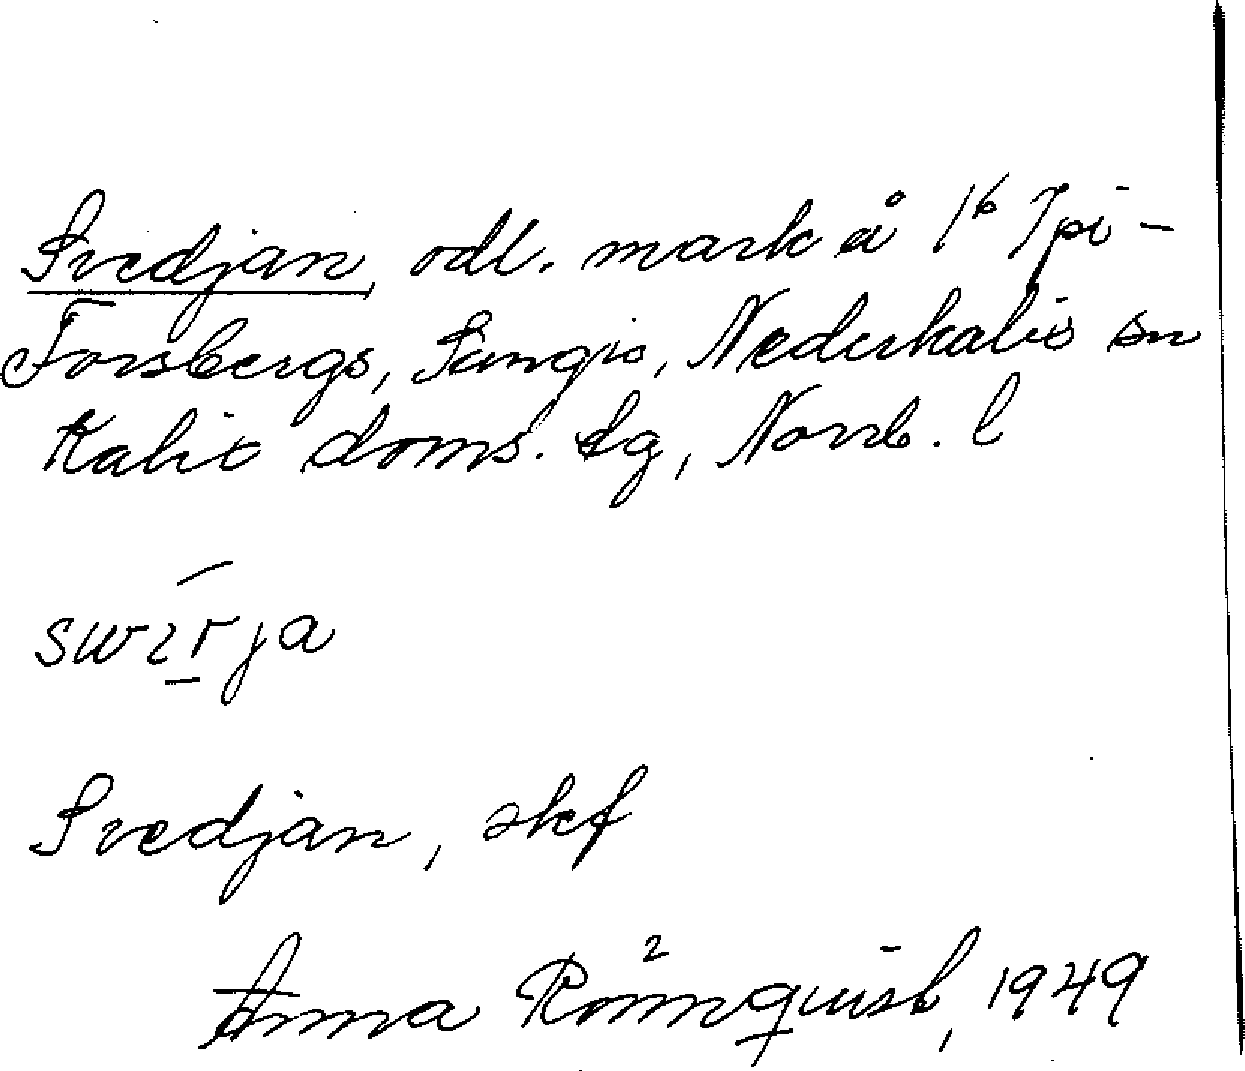 Svedjan, odl. mark å 1⁶ Spi-
Forsbergs, Sangis, Nederkalix sn
Kalix doms. tg, Norrb. l
Svedjan, skf
Anna Rönnquist, 1949